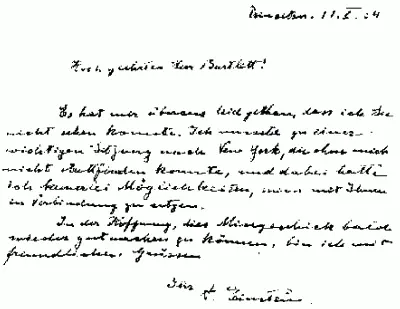 Princeton. 11. X. 34
Hochgeehrter Herr Bartlett!
Es hat mir überaus leid gethan, dass ich Sie
nicht sehen konnte. Ich musste zu einer
wichtigen Sitzung nach New York, die ohne mich
nicht stattfinden konnte, und dabei hatte
ich keinerlei Möglichkeiten, mich mit Ihnen
in Verbindung zu setzen.
In der Hoffnung, dies Missgeschick bald
wieder gut machen zu können, bin ich mit
freundlichen Grüssen
Ihr A. Einstein.